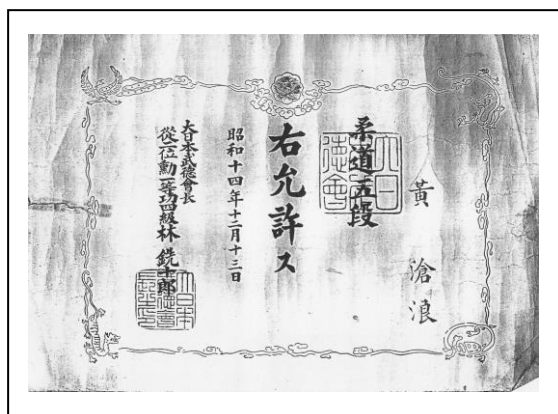 黃滄浪
柔道五段
右允許ス
昭和十四年十二月十三日
大日本武德會長
從二位勳一等功四級林銑十郎